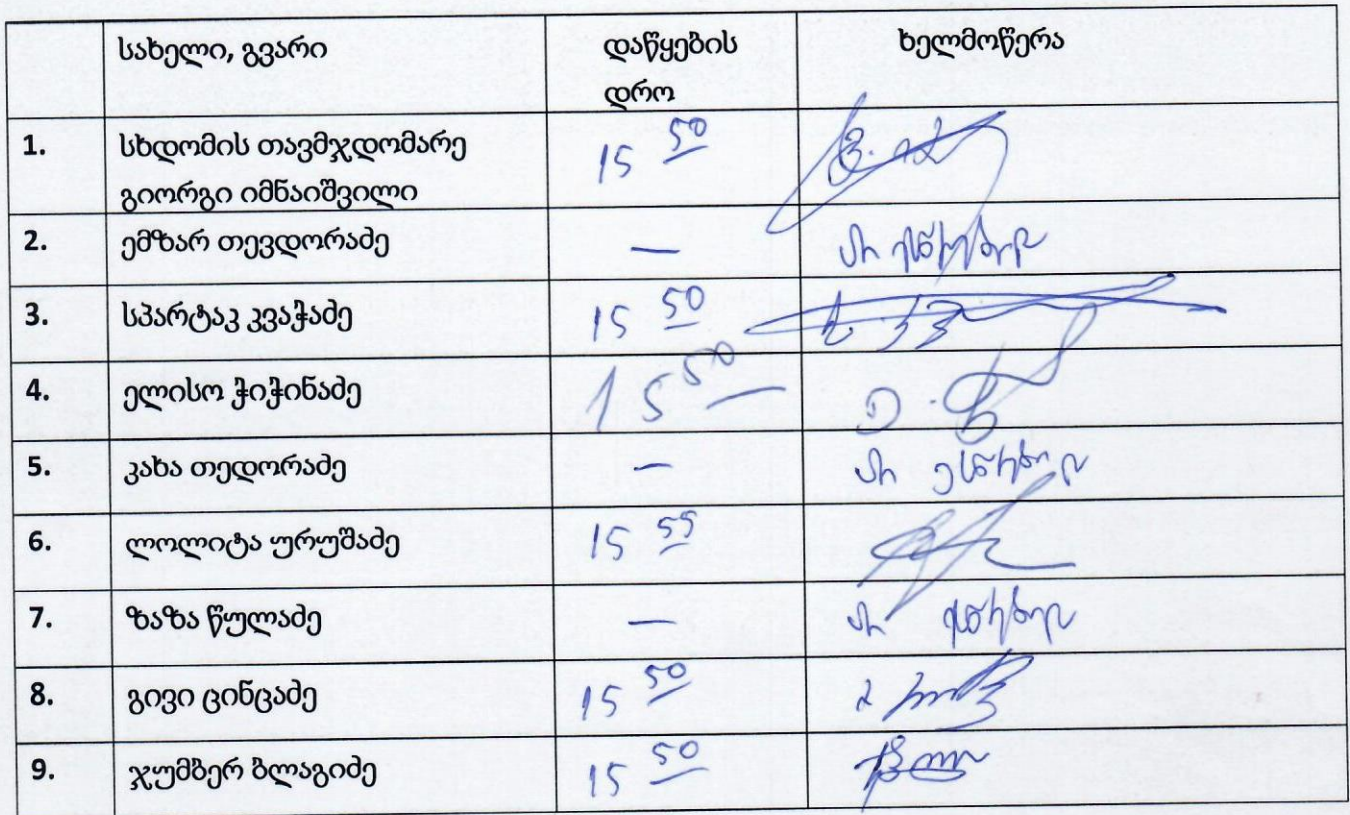 სახელი, გვარი დაწყების ხელმოწერა
დრო
1. სხდომის თავმჯდომარე 15 50
გიორგი იმნაიშვილი
2. ემზარ თევდორაძე — არ ესწრებოდა
3. სპარტაკ კვაჭაძე 15 50
4. ელისო ჭიჭინაძე 15 50
5. კახა თედორაძე — არ ესწრებოდა
6. ლოლიტა ურუშაძე 15 55
7. ზაზა წულაძე — არ ესწრებოდა
8. გივი ცინცაძე 15 50
9. ჯუმბერ ბლაგიძე 15 50